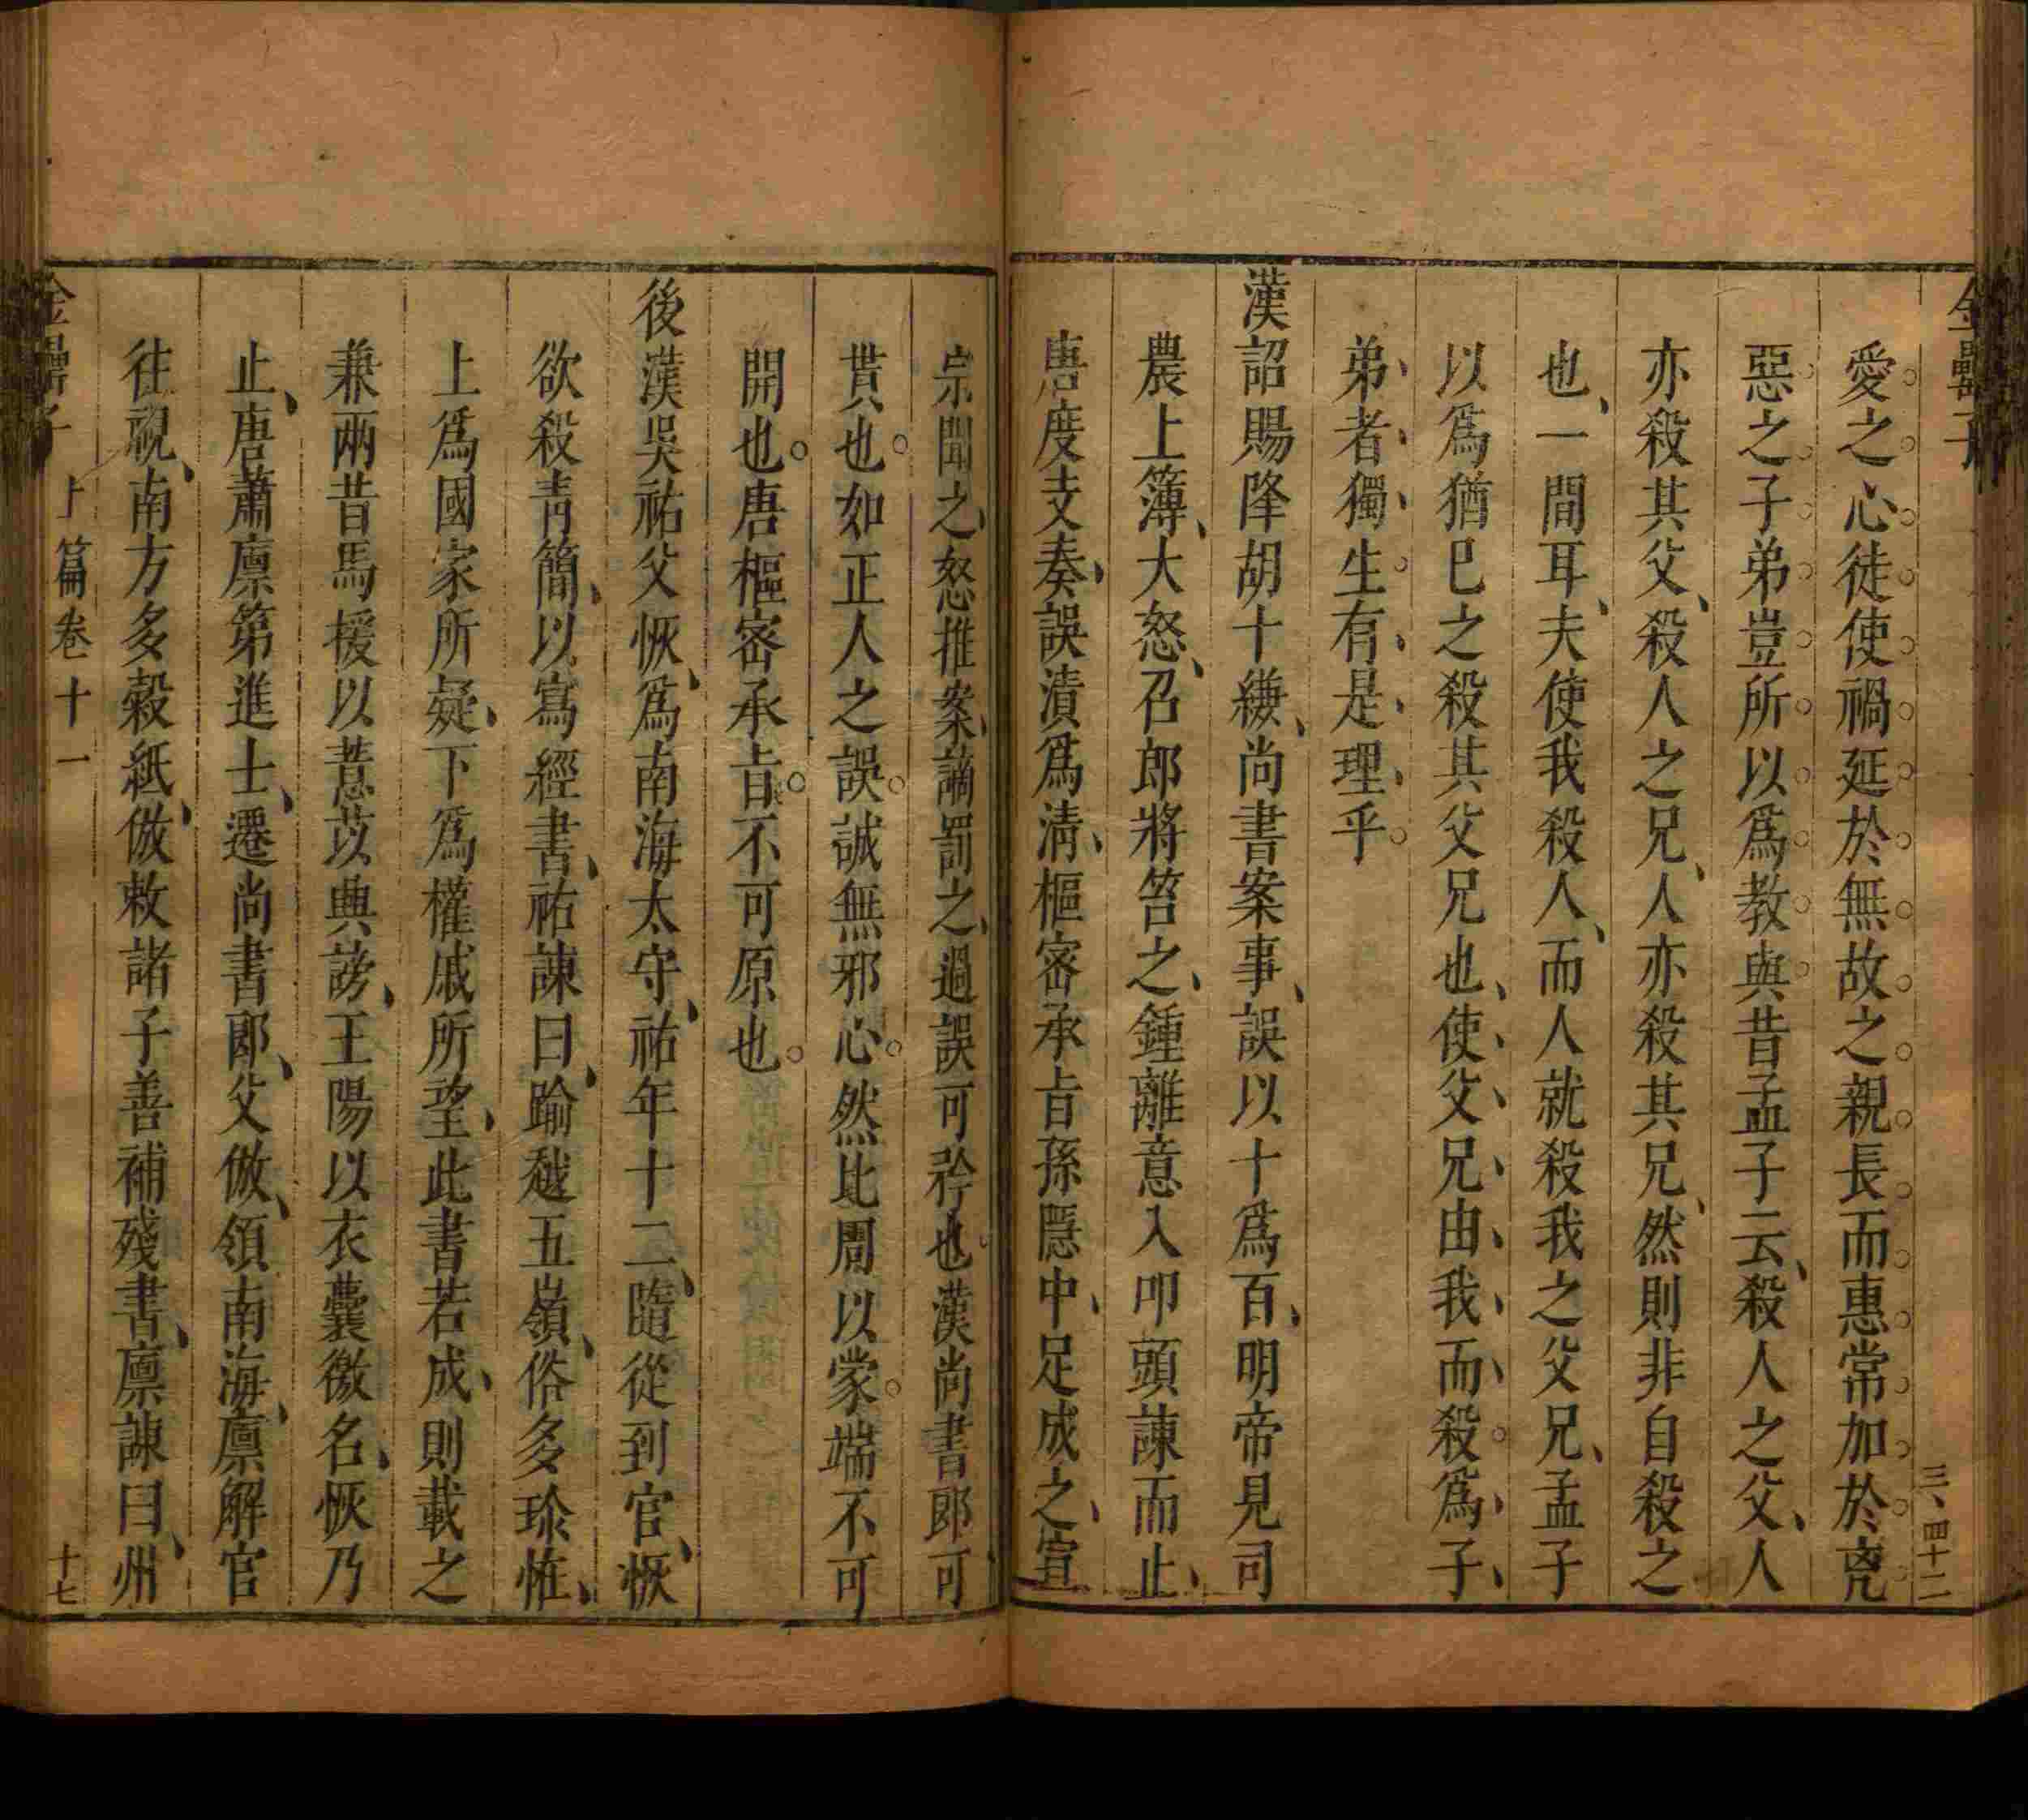 金罍子
三、四十二
愛之心徒使禍延於無故之親長而惠常加於兇
惡之子弟豈所以爲教與昔孟子云殺人之父人
亦殺其父殺人之兄人亦殺其兄然則非自殺之
也一間耳夫使我殺人而人就殺我之父兄孟子
以爲猶巳之殺其父兄也使父兄由我而殺爲子
弟者獨生有是理乎
漢詔賜降胡十縑尚書案事誤以十爲百明帝見司
農上簿大怒召郎將笞之鍾離意入叩頭諫而止
唐度支奏誤漬爲清樞密承旨孫隱中足成之宣
宗聞之怒推案謫罰之過誤可矜也漢尚書郎可
貰也如正人之誤誠無邪心然比周以蒙端不可
開也唐樞密承旨不可原也
後漢吳祐父恢爲南海太守祐年十二隨從到官恢
欲殺青簡以寫經書祐諫曰踰越五嶺俗多珍恠
上爲國家所疑下爲權戚所望此書若成則載之
兼兩昔馬援以薏苡興謗王陽以衣囊徼名恢乃
止唐蕭廩第進士遷尚書郎父倣領南海廩解官
往視南方多榖紙倣敕諸子善補殘書廩諫曰州
金罍子
上篇卷十一
十七